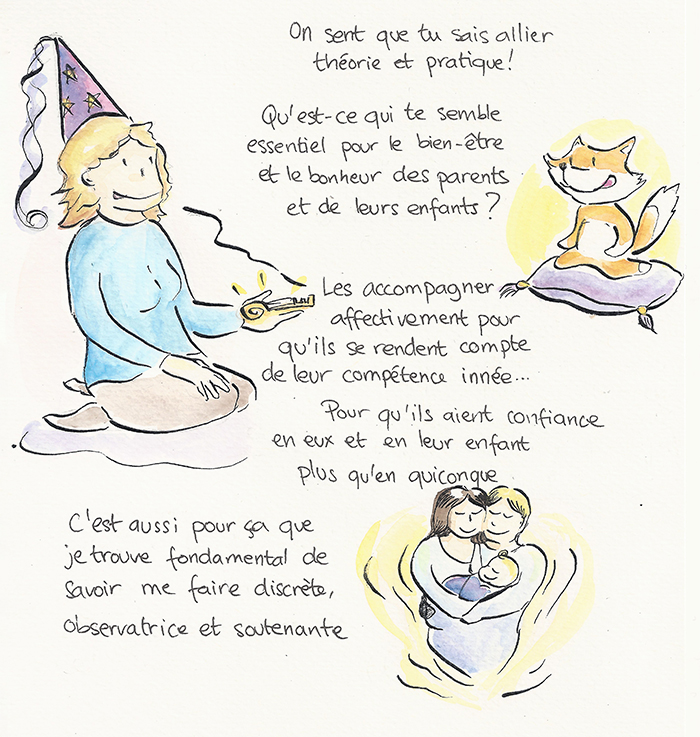 On sent que tu sais allier
théorie et pratique!
Qu'est-ce qui te semble
essentiel pour le bien-être
et le bonheur des parents
et de leurs enfants ?
Les accompagner
affectivement pour
qu'ils se rendent compte
de leur compétence innée...
Pour qu'ils aient confiance
en eux et en leur enfant
plus qu'en quiconque
C'est aussi pour ça que
je trouve fondamental de
savoir me faire discrète,
observatrice et soutenante